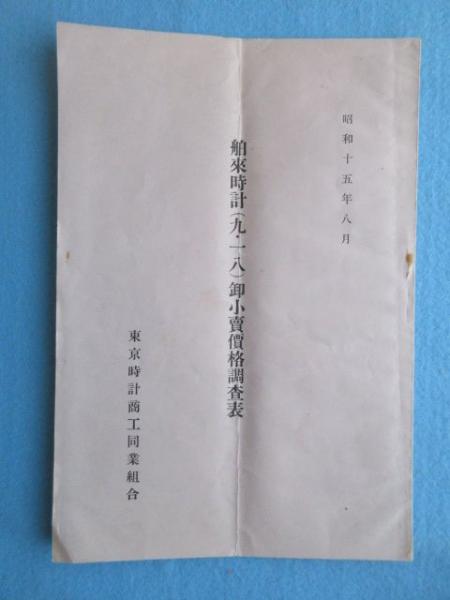 昭和十五年八月
舶來時計(九・一八)卸小賣價格調査表
東京時計商工同業組合